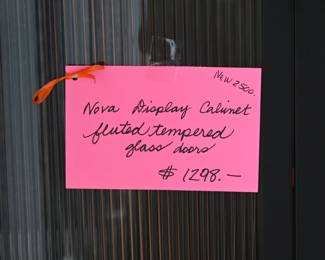 New 2500.
Nova Display Cabinet
fluted tempered
glass doors
$ 1298.—